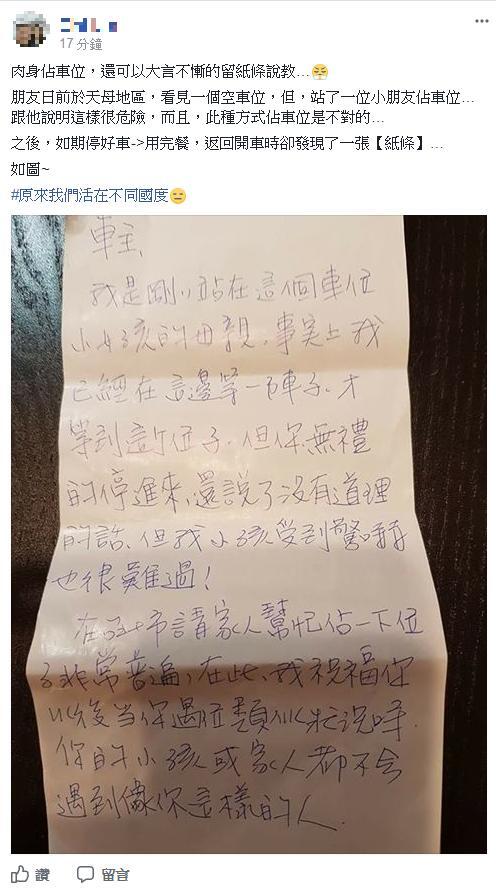 17分鐘
肉身佔車位，還可以大言不慚的留紙條說教...
朋友日前於天母地區，看見一個空車位，但，站了一位小朋友佔車位...
跟他說明這樣很危險，而且，此種方式佔車位是不對的...
之後，如期停好車->用完餐，返回開車時卻發現了一張【紙條】...
如圖~
#原來我們活在不同國度
車主、
我是剛剛站在這個車位
小女孩的母親，事實上我
已經在這邊等一陣子、才
等到這個位子、但你無禮
的停進來，還說了沒有道理
的話、但我小孩受到驚嚇
也很難過！
在台北市請家人幫忙佔一下位
子非常普遍，在此、我祝福你
以後當你遇這類似狀況時，
你的小孩或家人都不會
遇到像你這樣的人．
讚 留言